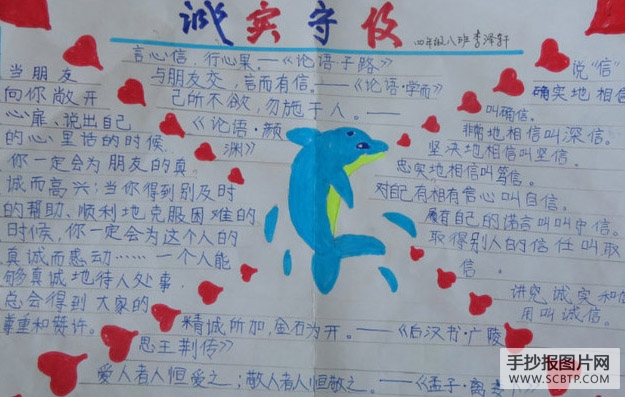 诚实守信
四年级八班李泽轩
言必信，行必果。——《论语·子路》
与朋友交，言而有信。——《论语·学而》
己所不欲，勿施于人。——
《论语·颜
渊》
当朋友
向你敞开
心扉、说出自己
的心里话的时候
你一定会为朋友的真
诚而高兴；当你得到别及时
的帮助、顺利地克服困难的
时候，你一定会为这个人的
真诚而感动……一个人能
够真诚地待人处事，
总会得到大家的
尊重和赞许。
说“信”
确实地相信
叫确信。
非常地相信叫深信。
坚决地相信叫坚信。
忠实地相信叫笃信。
对自己有相有信心叫自信。
履有自己的诺言叫叫守信。
取得别人的信任叫取
信。
讲究诚实和信
用叫诚信。
精诚所加，金石为开。——《后汉书·广陵
思王荆传》
爱人者人恒爱之；敬人者人恒敬之。——《孟子·离娄
手抄报图片网
WWW.SCBTP.COM